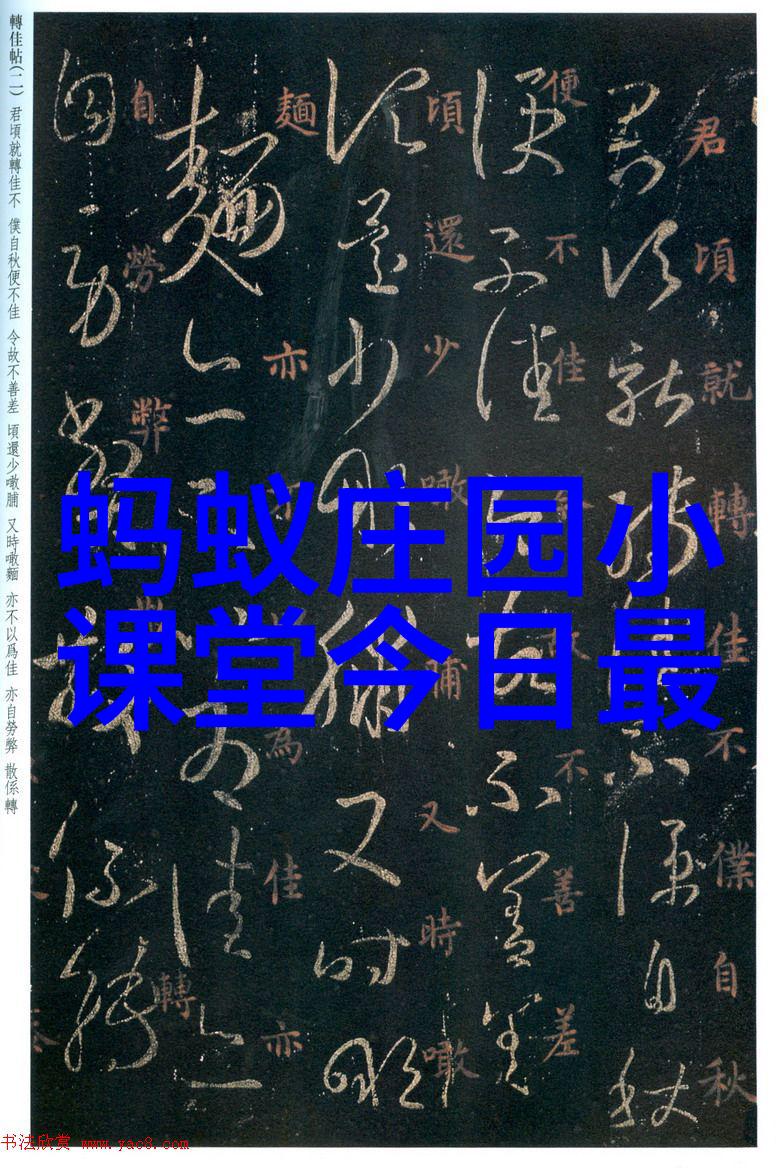 轉佳帖(二) 君頃就轉佳不 僕自秋便不佳 今故不善差 頃還少噉脯 又時噉麵 亦不以爲佳 亦自勞弊 散係轉
君頃就轉佳不僕自秋
便不佳今故不善差
頃還少噉脯又時噉
麵亦不以為佳亦
自勞弊散係轉
蚂蚁庄园小
课堂今日最
书法欣赏 www.yac8.com